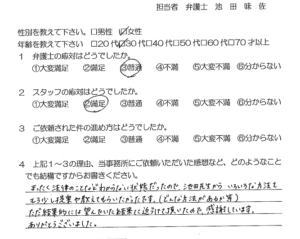 担当者 弁護士 池田味佐
性別を教えて下さい □男性 ☑女性
年齢を教えて下さい □20代☑30代□40代□50代□60代□70才以上
1 弁護士の応対はどうでしたか。
①大変満足 ②満足 ③普通 ④不満 ⑤大変不満 ⑥分からない
2 スタッフの応対はどうでしたか。
①大変満足 ②満足 ③普通 ④不満 ⑤大変不満 ⑥分からない
3 ご依頼された件の進め方はどうでしたか。
①大変満足 ②満足 ③普通 ④不満 ⑤大変不満 ⑥分からない
4 上記1～3の理由、当事務所にご依頼いただいた感想など、どのようなこと
でも結構ですからお書きください。
まったく法律のことなどわからない状態だったので、池田先生から いろいろな方法を
もう少し提案や教えてもらいたかったです。(どんな方法があるか等)
ただ結果的には望んでいた結果に近づけて頂いたので、感謝しています。
ありがとうございました。